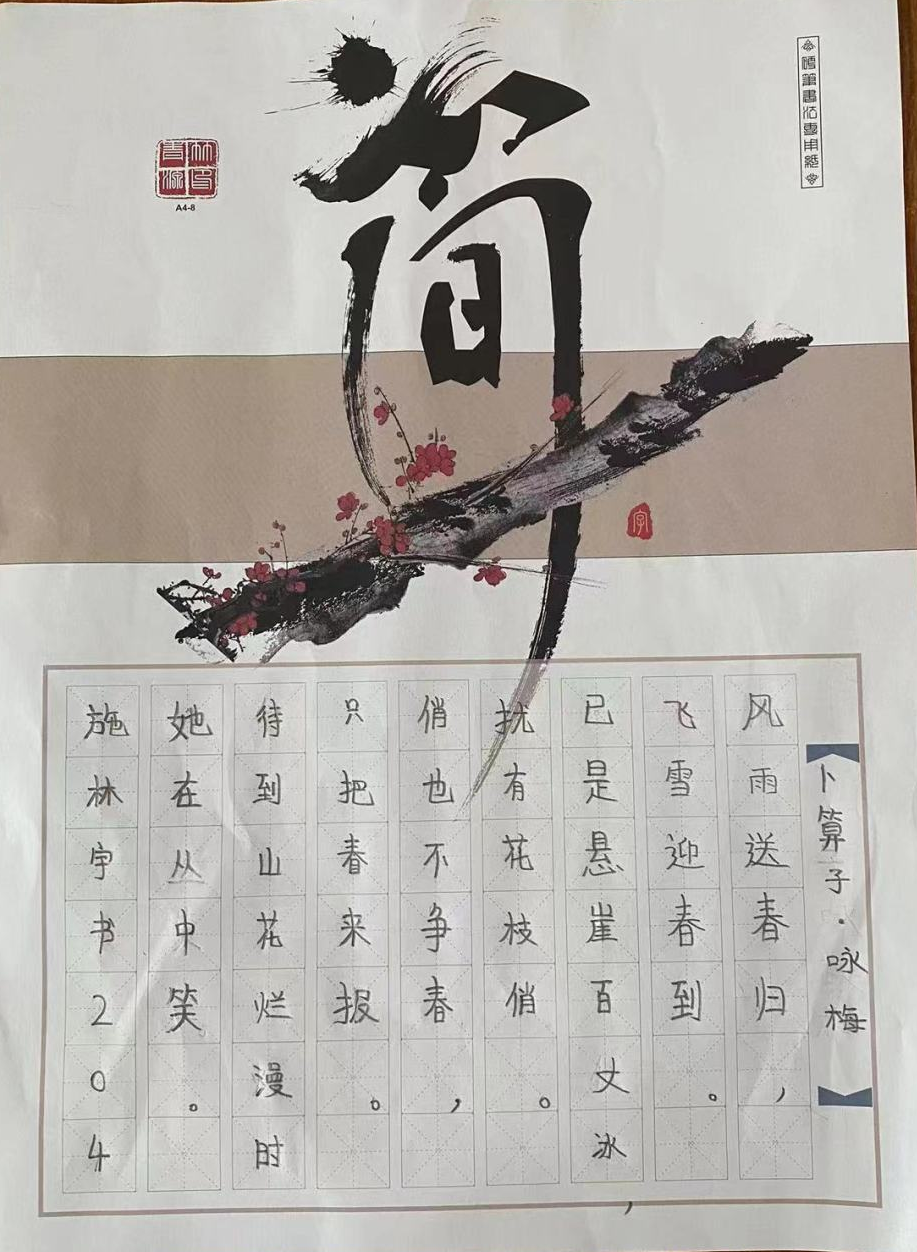 简
硬笔书法专用纸
A4-8
字
卜算子·咏梅
风雨送春归,
飞雪迎春到。
已是悬崖百丈冰,
扰有花枝俏。
俏也不争春,
只把春来报。
待到山花烂漫时
她在丛中笑。
施林宇书204